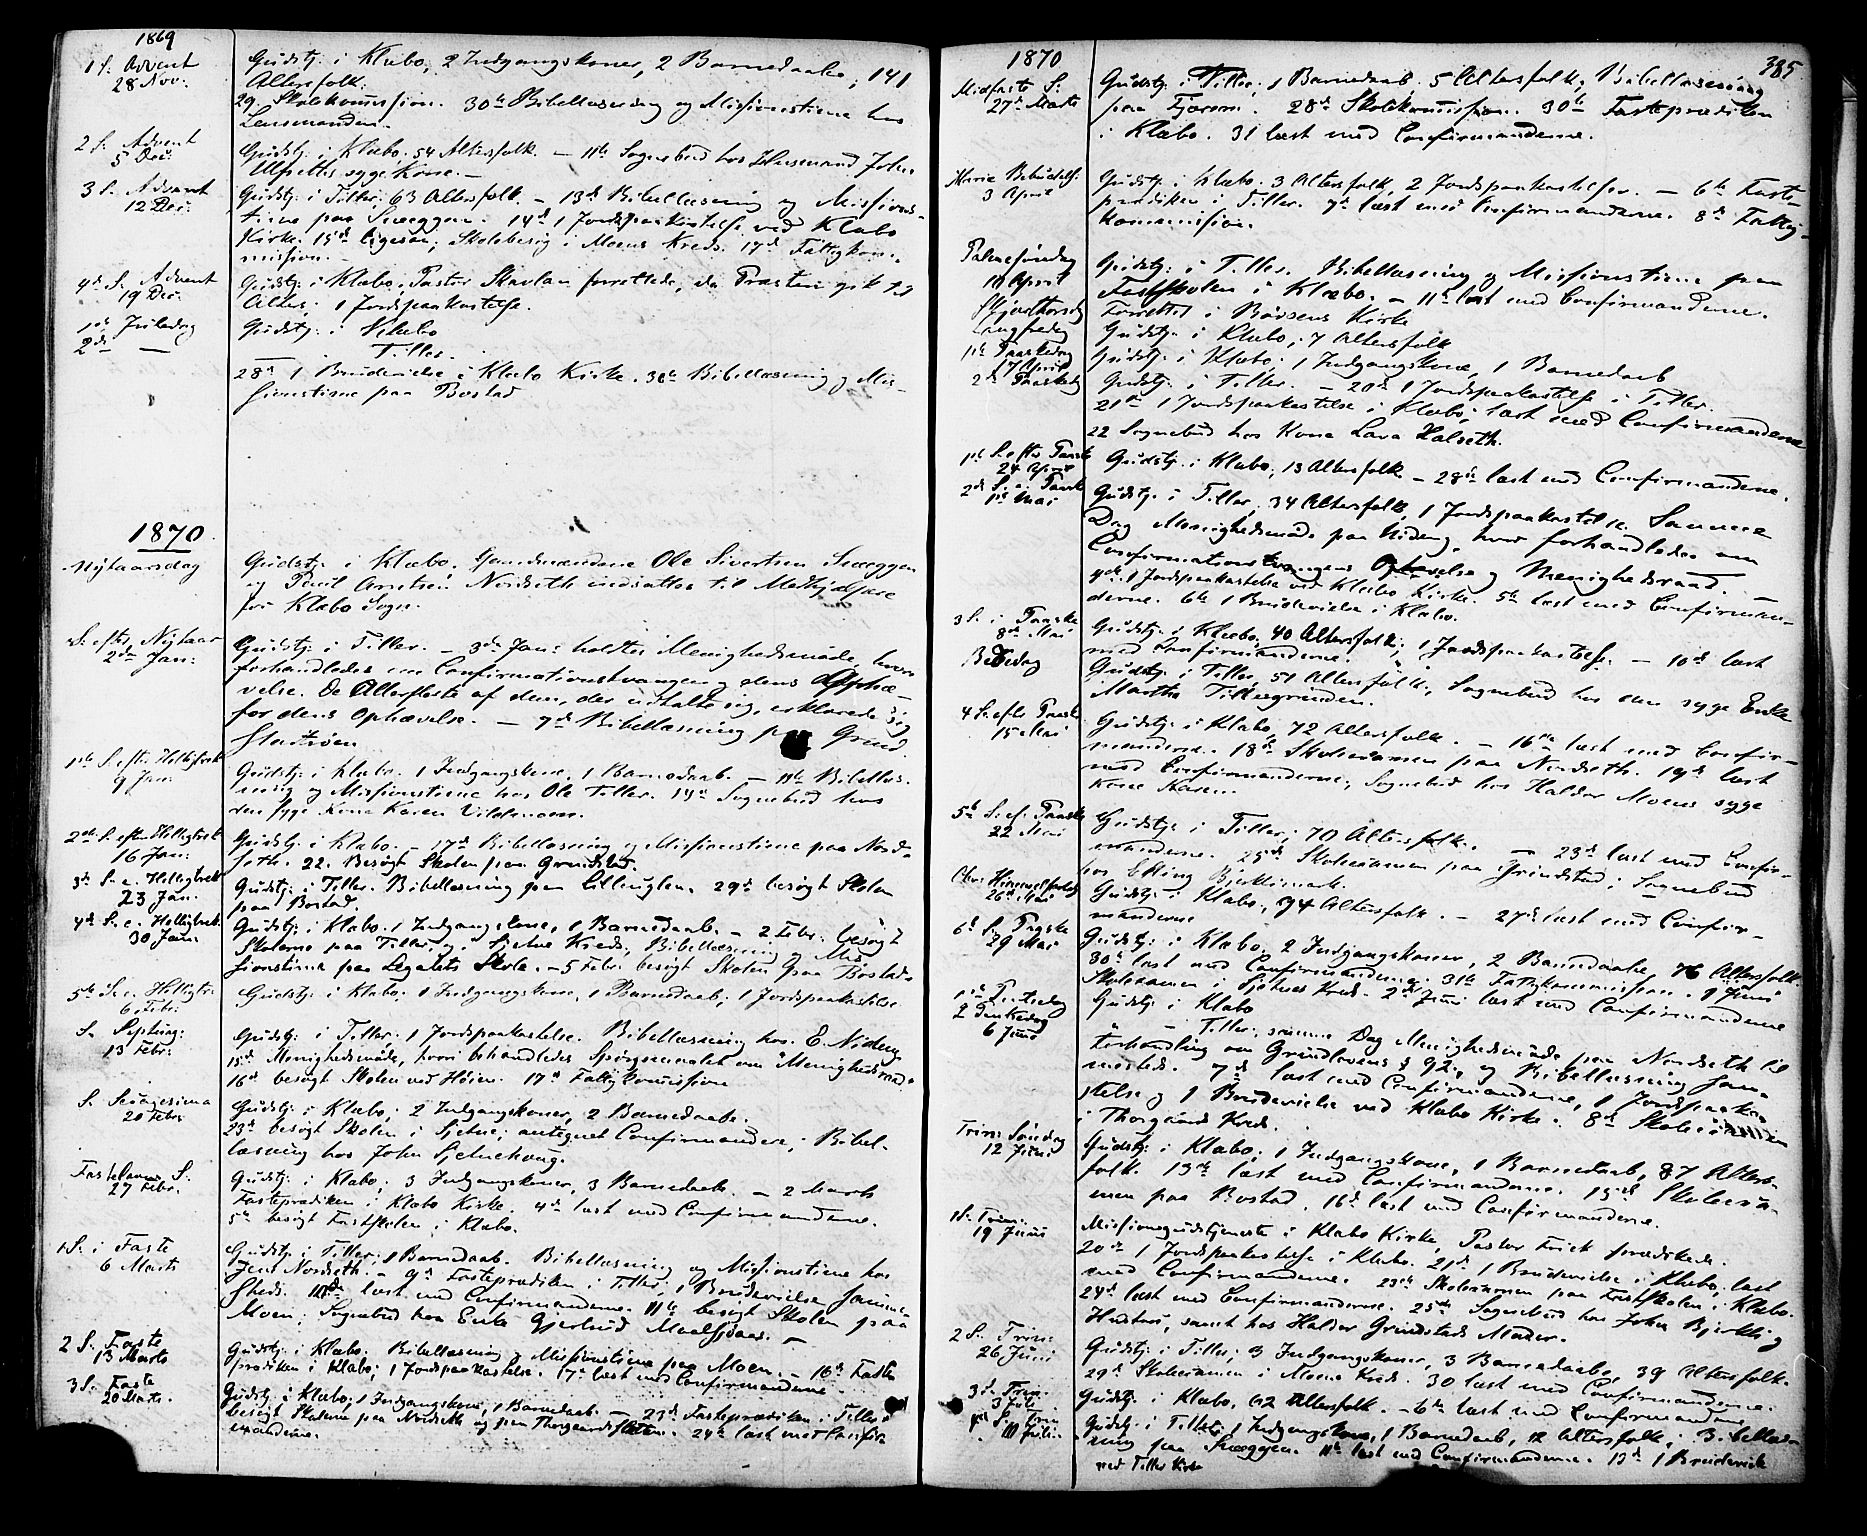 1869
1 S. Advent
28 Nov.
Gudstj. i Klæbo, 2 Indgangskoner, 2 Barnedaabe, 141
Altersfolk.
29. Skolekommission. 30te Bibellæsning og Missionstime hos
Lensmanden.
2 S. Advent
5 Dec:
Gudstj. i Klæbo. 54 Altersfolk. – 11te Sognebud hos Husmand John
Ulsets syge Kone. –
3 S. Advent
12 Dec:
Gudstj. i Tiller, 63 Altersfolk. – 13de Bibellæsning og Missions-
time paa Sneeggen. 14de 1 Jordspaakastelse ved Klæbo
Kirke. 15de ligesaa; Skolebesøg i Moens Kreds. 17de Fattigkom-
mission.
4de S. Advent
19 Dec:
Gudstj. i Klæbo. Pastor Skavlan forrettede, da Præsten gik til
Alters; 1 Jordspaakastelse.
1ste Juledag
Gudstj. i Klæbo
2de —
— Tiller.
28de 1 Brudevielse i Klæbo Kirke. 30te Bibellæsning og Mis-
sionstime paa Bostad
1870
Nytaarsdag
Gudstj. i Klæbo. Gaardmændene Ole Sivertsen Sneeggen
og Paul Arntsen Nordseth indsattes til Medhjælpere
for Klæbo Sogn.
S. efter Nytaar
2den Jan:
Gudstj. i Tiller. – 3die Jan: holdtes Menighedsmøde, hvor
forhandledes om Confirmationstvangen og dens Ophæ-
velse. De Allerfleste af dem, der udtalte sig, erklærede sig
for dens Ophævelse. – 7de Bibellæsning paa Grind
Stadtrøen
1ste S. efter Helligtrek
9 Jan:
Gudstj. i Klæbo. 1 Indgangskone, 1 Barnedaab. – Bibellæs-
ning og Missionstime hos Ole Tiller. 14de Sognebud hos
den syge Kone Karen
2den S. efter Helligtrek
16 Jan:
Gudstj. i Klæbo. – 17de Bibellæsning og Missionstime paa Nord-
seth. 22. Besøgt Skolen paa Grindstad.
3de S. e. Helligtrek
23 Jan:
Gudstj. i Tiller. Bibellæsning paa Lilleuglen. 29de besøgt Skolen
paa Bostad.
4de S. e. Helligtrek.
30 Jan:
Gudstj. i Klæbo. 1 Indgangskone, 1 Barnedaab. – 2 Febr. besøgt
Skolerne paa Tiller og i Sjetne Kreds; Bibellæsning og Mis-
sionstime paa Legatets Skole. – 5 Febr. besøgt Skolen paa Bostad.
5te S. e. Helligtr.
6 Febr:
Gudstj. i Klæbo. 1 Indgangskone, 1 Barnedaab, 1 Jordspaakastelse
S. Septuag:
13 Febr:
Gudstj. i Tiller. 1 Jordspaakastelse. Bibellæsning hos E. Nideng
15de Menighedsmøde, hvori behandledes Spørgsmaalet om "Menighedsraad."
16de besøgt Skolen ved Høien. 17de Fattigkommission
S. Sexagesima
20 Febr:
Gudstj. i Klæbo. 2 Indgangskoner, 2 Barnedaabe.
23de besøgt Skolen i Sjetne; antegnet Confirmander; Bibel-
læsning hos John Sjetnehaug.
Fastelavns S.
27 Febr.
Gudstj. i Klæbo; 3 Indgangskoner, 3 Barnedaabe. – 2 Marts
Fasteprædiken i Klæbo Kirke. 4de læst med Confirmanderne.
5te besøgt Fastskolen i Klæbo.
1 S. i Faste
6 Marts
Gudstj. i Tiller; 1 Barnedaab. Bibellæsning og Missionstime hos
Jens Nordseth. – 9de Fasteprædiken i Tiller; 1 Brudevielse samme-
steds. 10de læst med Confirmanderne. 11te besøgt Skolen paa
Moen; Sognebud hos Enke Gjertrud
2 S. Faste
13 Marts
Gudstj. i Klæbo. Bibellæsning og Missionstime paa Moen. – 16de Faste
prædiken i Klæbo; 1 Jordspaakastelse. 17de læst med Confirmanderne –
3 S. Faste
20 Marts.
Gudstj. i Klæbo; 1 Indgangskone, 1 Barnedaab. – 23de Fasteprædiken i Tiller
besøgt Skolerne paa Nordseth og paa Thorgaardsfletten. 24de læst med Confir
manderne.
1870
385
Midfaste S.
27de Marts
Gudstj. i Tiller. 1 Barnedaab. 5 Altersfolk; Bibellæsning
paa Fjærem. 28de Skolekommission. 30te Fasteprædiken
i Klæbo. 31 læst med Confirmanderne.
Mariæ Bebudelse.
3 April
Gudstj. i Klæbo. 3 Altersfolk, 2 Jordspaakastelser. – 6te Faste-
prædiken i Tiller. 7de læst med Confirmanderne. 8de Fattig-
kommission.
Palmesøndag
10 April
Gudstj. i Tiller. Bibellæsning og Missionstime paa
Fastskolen i Klæbo. – 11te læst med Confirmanderne.
Skjærthorsdg
Forrettet i Børsens Kirke
Langfredag
Gudstj. i Klæbo; 7 Altersfolk
1ste Paaskedag
17 April
Gudstj. i Klæbo; 1 Indgangskone, 1 Barnedaab
2den Paaskedg
Gudstj. i Tiller. – 20de 1 Jordspaakastelse i Tiller.
21de 1 Jordspaakastelse i Klæbo; læst med Confirmanderne
22 Sognebud hos Kone Lava Halseth.
1ste S. efter Paaske
24 April
Gudstj. i Klæbo; 13 Altersfolk – 28de læst med Confirmanderne.
2de S. e. Paaske
1ste Mai
Gudstj. i Tiller, 34 Altersfolk, 1 Jordspaakastelse. Samme
Dag Menighedsmøde paa Nideng, hvor forhandledes om
Confirmationstvangens Ophævelse og Menighedsraad. –
4de 1 Jordspaakastelse ved Klæbo Kirke. 5te læst med Confirman-
derne. 6te 1 Brudevielse i Klæbo.
3 S. e. Paaske
8de Mai
Gudstj. i Klæbo; 40 Altersfolk; 1 Jordspaakastelse. – 10de læst
med Confirmanderne.
Bededag
Gudstj. i Tiller, 51 Altersfolk; Sognebud hos den syge Enke
Martha Tillergrinden.
4 S. efter Paaske
15 Mai
Gudstj. i Klæbo, 72 Altersfolk. – 16de læst med Confir-
manderne. 18de Skoleexamen paa Nordseth. 19de læst
med Confirmanderne; Sognebud hos Haldor Moens syge
Kone Karen.
5te S. ef. Paaske
22 Mai
Gudstj. i Tiller; 70 Altersfolk. – 23de læst med Confir-
manderne. 25de Skoleexamen paa Grindstad; Sognebud
hos Elling Bjerklimark.
Chr: Himmelfartsdg
26de Mai
Gudstj. i Klæbo; 94 Altersfolk. – 27de læst med Confir-
manderne
6te S. Paaske
29 Mai
Gudstj. i Klæbo. 2 Indgangskoner, 2 Barnedaabe, 76 Altersfolk.
30te læst med Confirmanderne. 31te Fattigkommission. 1 Juni
Skoleexamen i Sjetnes Kreds. 2den Juni læst med Confirmanderne
1ste Pintsedag
Gudstj. i Klæbo
2 Pintsedag
6 Juni
" — Tiller; samme Dag Menighedsmøde paa Nordseth til
Forhandling om Grundlovens § 92, og Bibellæsning sam-
mesteds. 7de læst med Confirmanderne, 1 Jordspaaka-
stelse og 1 Brudevielse ved Klæbo Kirke. 8de Skoleexamen
i Thorgaards Kreds.
Trin: Søndag
12 Juni
Gudstj. i Klæbo; 1 Indgangskone, 1 Barnedaab, 87 Alters-
folk. 13de læst med Confirmanderne. 15de Skoleexa-
men paa Bostad. 16de læst med Confirmanderne.
1 S. Trin:
19 Juni
Missionsgudstjeneste i Klæbo Kirke, Pastor Frick prædikede.
20de 1 Jordspaakastelse i Klæbo. 21de 1 Brudevielse i Klæbo, læst
med Confirmanderne. 23de Skoleexamen paa Fastskolen i Klæbo.
24de læst med Confirmanderne. 25de Sognebud hos John Bjerkli
Hustru, samt hos Haldor Grindstads Moder.
2 S. Trin:
26 Juni
Gudstj. i Tiller; 3 Indgangskoner, 3 Barnedaabe, 39 Altersfolk.
29de Skoleexamen i Moens Kreds. 30 læst med Confirmanderne.
3 S. Trin.
3 Juli
Gudstj. i Klæbo, 62 Altersfolk. – 6te læst med Confirmanderne
4de S. Trin
10 Juli
Gudstj. i Tiller; 1 Indgangskone, 1 Barnedaab, 12 Altersfolk; Bibellæs-
ning paa Sneeggen. 11te læst med Confirmanderne. 13de 1 Brudevielse
ved Tiller Kirke